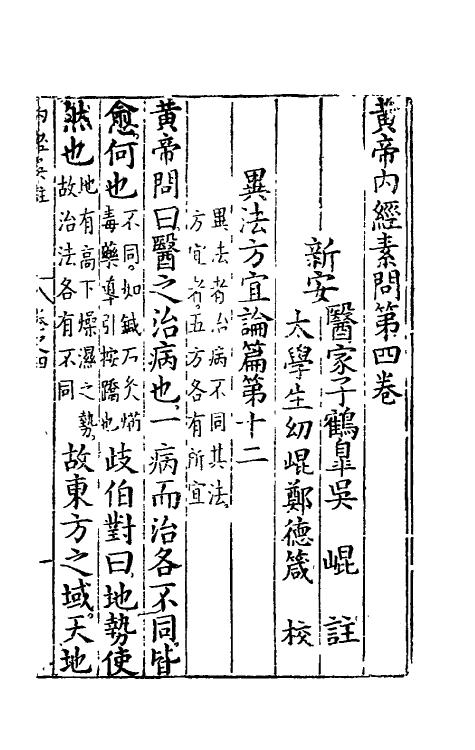 黃帝內經素問第四卷
新安
醫家子鶴皐吳　崐　註
太學生幼崐鄭德箴　校
異法方宜論篇第十二
異法者治病不同其法。
方宜者五方各有所宜
黃帝問曰醫之治病也一病而治各不同皆
愈何也
不同。如鍼石灸焫
毒藥導引按蹻也
歧伯對曰地勢使
然也
地有高下燥濕之勢。
故治法各有不同
故東方之域。天地
內經吳註
卷之四
一